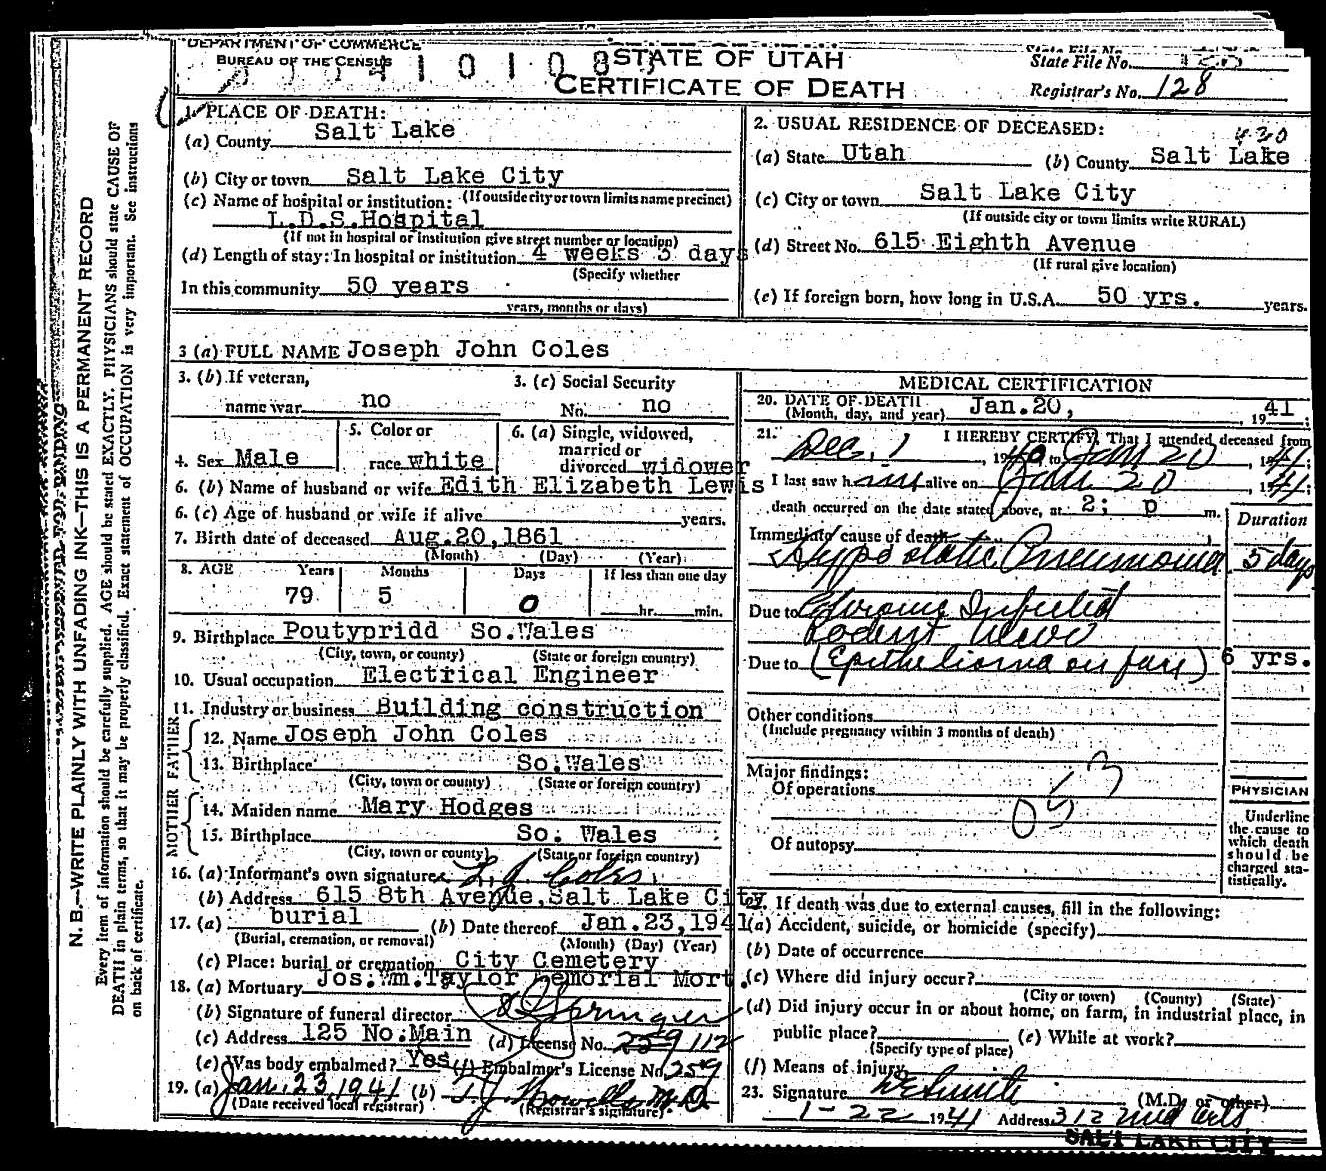 DEPARTMENT OF COMMERCE
BUREAU OF THE CENSUS
STATE OF UTAH
CERTIFICATE OF DEATH
State File No.
Registrar's No. 128
1. PLACE OF DEATH:
(a) County Salt Lake
(b) City or town Salt Lake City
(If outside city or town limits name precinct)
(c) Name of hospital or institution:
L.D.S.Hospital
(If not in hospital or institution give street number or location)
(d) Length of stay: In hospital or institution 4 weeks 3 days
(Specify whether
In this community 50 years
years, months or days)
2. USUAL RESIDENCE OF DECEASED:
430
(a) State Utah (b) County Salt Lake
(c) City or town Salt Lake City
(If outside city or town limits write RURAL)
(d) Street No. 615 Eighth Avenue
(If rural give location)
(e) If foreign born, how long in U.S.A. 50 yrs. years.
3 (a) FULL NAME Joseph John Coles
3. (b) If veteran,
name war no
3. (c) Social Security
No. no
4. Sex Male
5. Color or
race white
6. (a) Single, widowed,
married or
divorced widower
6. (b) Name of husband or wife Edith Elizabeth Lewis
6. (c) Age of husband or wife if alive years.
7. Birth date of deceased Aug.20,1861
(Month) (Day) (Year)
8. AGE Years Months Days If less than one day
79 5 0 hr. min.
9. Birthplace Poutypridd So.Wales
(City, town, or county) (State or foreign country)
10. Usual occupation Electrical Engineer
11. Industry or business Building construction
FATHER
12. Name Joseph John Coles
13. Birthplace So.Wales
(City, town or county) (State or foreign country)
MOTHER
14. Maiden name Mary Hodges
15. Birthplace So. Wales
(City, town or county) (State or foreign country)
16. (a) Informant's own signature L. J. Coles
(b) Address 615 8th Avenue,Salt Lake City
17. (a) burial (b) Date thereof Jan.23,1941
(Burial, cremation, or removal) (Month) (Day) (Year)
(c) Place: burial or cremation City Cemetery
18. (a) Mortuary Jos.Wm.Taylor Memorial Mort.
(b) Signature of funeral director Springer
(c) Address 125 No.Main (d) License No. 259 112
(e) Was body embalmed? Yes (f) Embalmer's License No. 259
19. (a) Jan. 23, 1941 (b) T. J. Howells M.D.
(Date received local registrar) (Registrar's signature)
MEDICAL CERTIFICATION
20. DATE OF DEATH
(Month, day, and year) Jan.20, , 1941
21. I HEREBY CERTIFY, That I attended deceased from
Dec. 1, 1940, to Jan 20, 1941;
I last saw him alive on Jan 20, 1941;
death occurred on the date stated above, at 2; p m.
Duration
Immediate cause of death
Hypostatic Pneumonia 5 days
Due to Chronic Infected
Rodent Ulcer
Due to (Epithelioma on face) 6 yrs.
Other conditions
(Include pregnancy within 3 months of death)
Major findings:
Of operations
053
Of autopsy
PHYSICIAN
Underline
the cause to
which death
should be
charged sta-
tistically.
22. If death was due to external causes, fill in the following:
(a) Accident, suicide, or homicide (specify)
(b) Date of occurrence
(c) Where did injury occur?
(City or town) (County) (State)
(d) Did injury occur in or about home, on farm, in industrial place, in
public place? (e) While at work?
(Specify type of place)
(f) Means of injury
23. Signature (M.D. or other)
1-22 1941 Address 312 Med arts
SALT LAKE CITY
N. B.—WRITE PLAINLY WITH UNFADING INK—THIS IS A PERMANENT RECORD
Every item of information should be carefully supplied. AGE should be stated EXACTLY. PHYSICIANS should state CAUSE OF
DEATH in plain terms, so that it may be properly classified. Exact statement of OCCUPATION is very important. See instructions
on back of certificate.